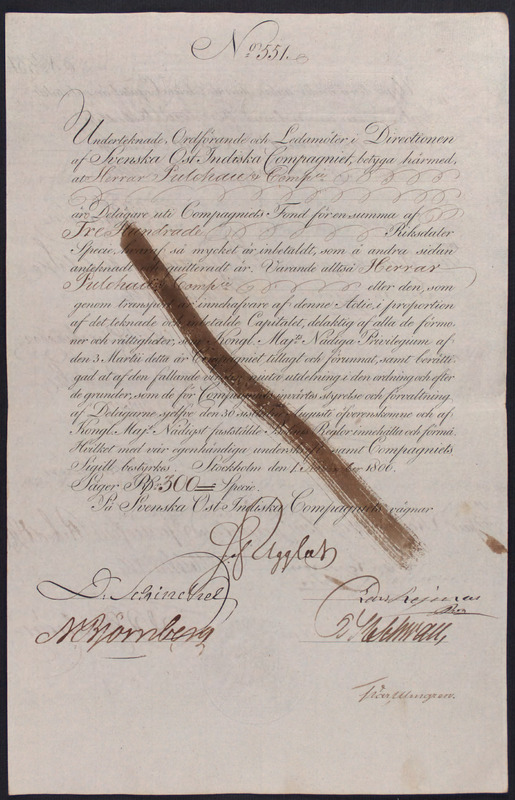 No. 551.
Underteknade, Ordförande och Ledamöter i Directionen
af Svenska Ost Indiska Compagniet, betyga härmed,
at Herrar Pulchau & Comp.
är Delägare uti Compagniets Fond för en summa af
Tre Hundrade Riksdaler
Specie, hvaraf så mycket är inbetaldt, som å andra sidan
anteknadt och quitteradt är. Varande altså Herrar
Pulchau & Comp. eller den, som
genom transport är innehafvare af denne Actie, i proportion
af det teknade och inbetalde Capitalet, delaktig af alla de förmo-
ner och rättigheter, som Kongl. Maj:ts Nådiga Privilegium af
den 3 Martii detta år Compagniet tillagt och förunnat, samt berätti-
gad at af den fallande vinsten niuta utdelning i den ordning och efter
de grunder, som de för Compagniets invärtes styrelse och förvaltning
af Delägarne sjelfve den 30 sistledne Augusti öfverenskomne och af
Kongl. Maj:t Nådigst faststälde Reglor innehålla och förmå.
Hvilket med vår egenhändiga underskrift samt Compagniets
Sigill bestyrkes. Stockholm den 1. 1806.
Säger Rd:r 300 Specie.
På Svenska Ost Indiska Compagniets vägnar
Ugglas
D. Schinckel
N Björnberg